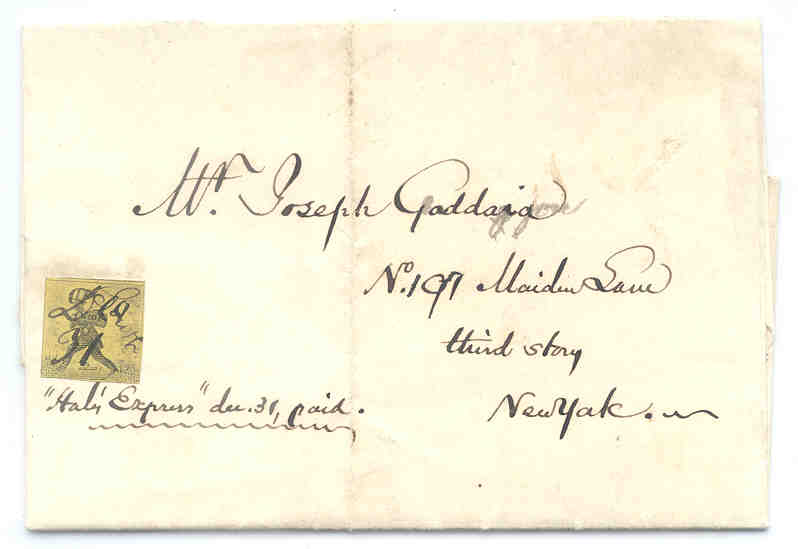 Mr. Joseph Goddard
No. 197 Maiden Lane
third story
New York.
"Hale's Express" dec. 31, paid.
31